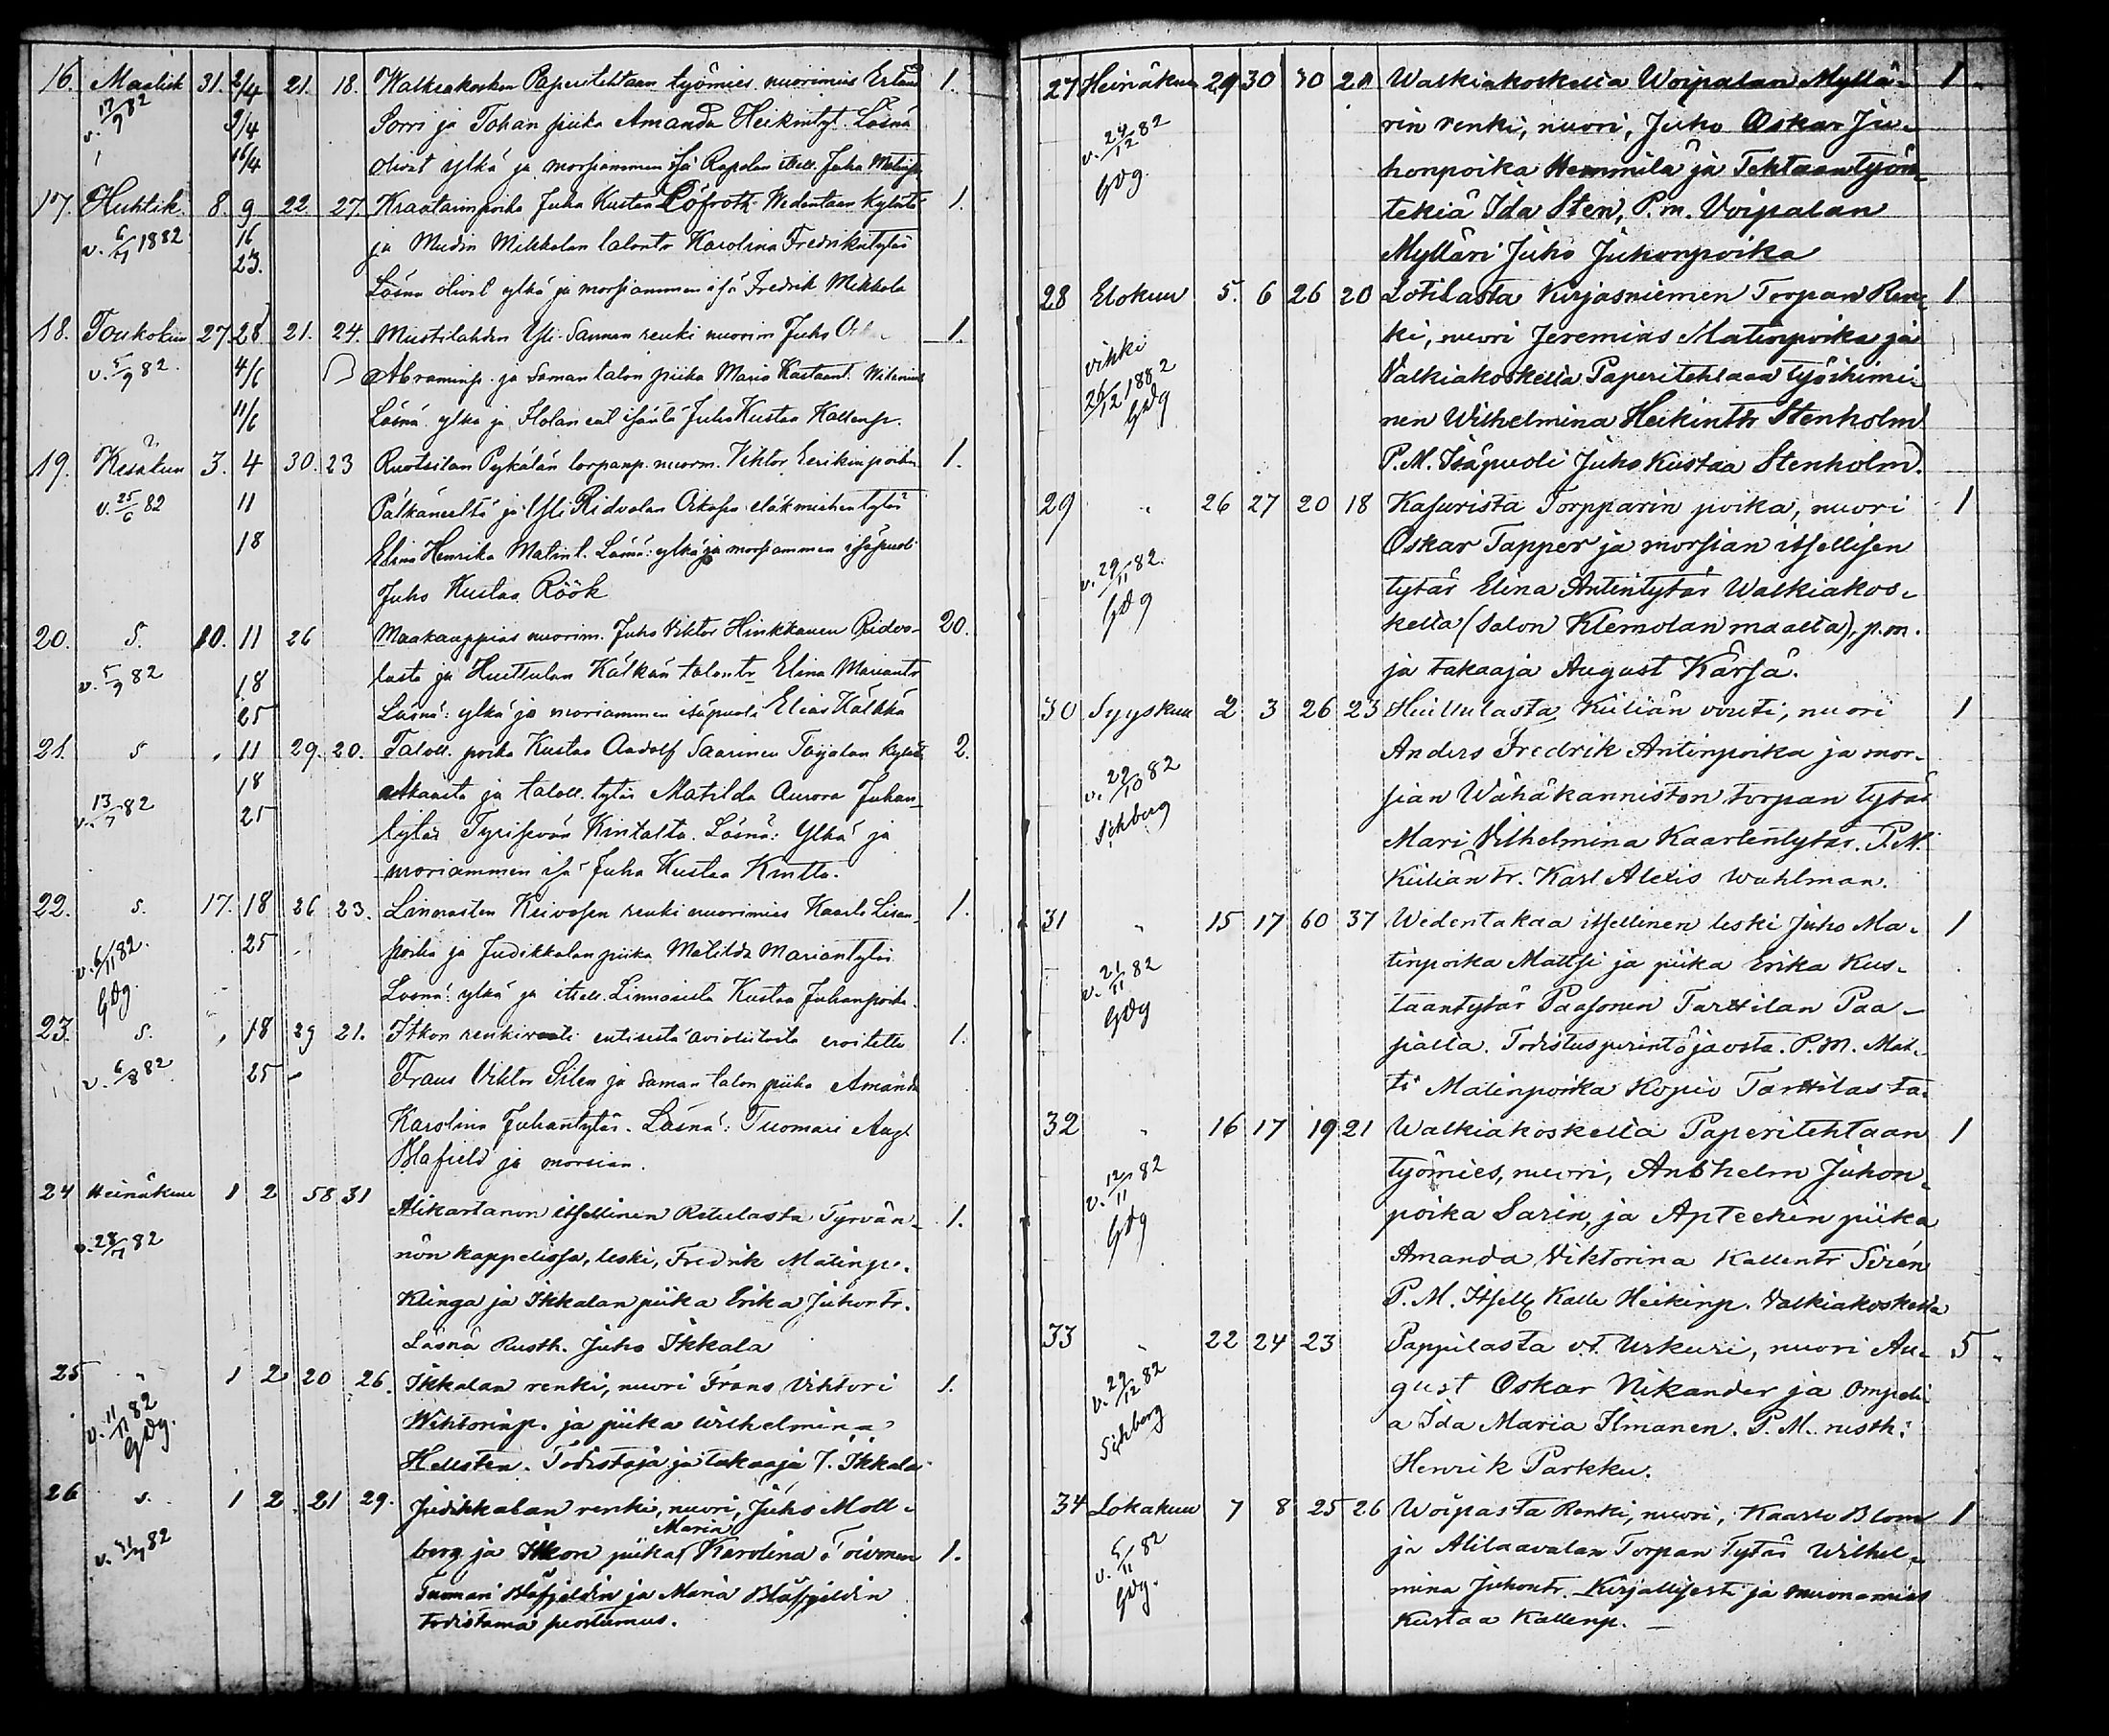 16. Maalisk 31. 2/4 21. 18. Walkiakosken Paperitehtaan työmies nuorimies Erland 1.
v. 17/9 82 9/4 Sorri ja Tohan piika Amanda Heikintyt. Läsnä
16/4 olivat ylkä ja morsiammen isä Rapolan itsell. Juha
17. Huhtik. 8. 9 22 27. Kraatarinpoika Juha Kustaa Löfroth Wedentaan kylästä 1.
v. 6/7 1882 16 ja Mikkolan talontr Karolina Fredrikintytär
23. Läsnä olivat ylkä ja morsiammen isä Fredrik Mikkola
18. Toukokuu 27. 28 21. 24. Mustilahden Yli-Sannan renki nuorim Juho 1.
v. 5/9 82. 4/6 Abraminp. ja Saman talon piika Maria Kustaant.
11/6 Läsnä ylkä ja isäntä Juho Kustaa Kallenp.
19. Kesäkuu 3. 4 30. 23 Ruotsilan Pykälän torpanp. nuorm. Viktor Eerikinpoika 1.
v. 25/6 82 11 Pälkäneeltä ja Yli Ridvalan eläkmiehentytär
18 Elina Henrika Matint. Läsnä: ylkä ja morsiammen isäpuoli
Juho Kustaa Röök
20. S. 10. 11 26 Maakauppias nuorim. Juho Viktor Hinkkanen Ridva- 20.
v. 5/9 82 18 lasta ja Huittulan Kälkän talontr Elina Mariantr
25 Läsnä: ylkä ja moriammen isäpuoli Elias Kälkkä
21. S „ 11 29. 20. Taloll. poika Kustaa Aadolf Saarinen Taijalan kyläst 2.
18 Akaasta ja taloll. tytär Matilda Aurora Juhan-
v. 13/7 82 25 tytär Kintalta. Läsnä: Ylkä ja
moriammen isä Juha Kustaa Kintta.
22. S. 17. 18 26 23. Linnaisten renki nuorimies Kaarle Lisan- 1.
v. 6/11 82. 25 poika ja Judikkalan piika Matilda Mariantytär
GDg. Läsnä: ylkä ja itsell. Kustaa Juhanpoika.
23. S. „ 18 29 21. Itkon renkivouti entisestä avioliitosta eroitettu 1.
v. 6/8 82 25 Frans Viktor Silen ja Saman talon piika Amanda
Karolina Juhantytär. Läsnä: Tuomari Aug.
Blafield ja morsian.
24 Heinäkuu 1 2 58 31 Alikartanon itsellinen Tyrvän- 1.
v. 28/7 82 nön kappelissa, leski, Fredrik Matinp.
Klinga ja Ikkalan piika Erika Juhontr.
Läsnä Rusth. Juho Ikkala
25 „ 1 2 20 26. Ikkalan renki, nuori Frans Vihtori 1.
v. 11/11 82 Wihtorinp. ja piika Wilhelmina
GDg. Hellsten. Todistaja ja takaaja J. Ikkala
26 S. 1 2 21 29. Judikkalan renki, nuori, Juho Moll-
Maria
v. 82 berg ja Itkon piika Karolina Toivonen 1.
Tuomari Blåfjeldin ja Maria Blåfjeldin
todistama puostumus.
27 Heinäkuu 29 30 30 20 Walkiakoskella Woipalan Myllä- 1
v. 24/12 82 rin renki, nuori, Juho Oskar Ju-
GDg. honpoika Hemmilä ja Tehtaantyön-
tekiä Ida Sten, P.m. Voipalan
Mylläri Juho Juhonpoika
28 Elokuu 5. 6 26 20 Lotilasta Kirjasniemen Torpan Ren- 1
vihki ki, nuori Jeremias Matinpoika ja
26/12 1882 Valkiakoskella Paperitehtaan työihmi-
GDg nen Wilhelmina Heikintr Stenholm
P.M. Isäpuoli Juho Kustaa Stenholm.
29 „ 26 27 20 18 Kasurista Torpparin poika, nuori 1
Oskar Tapper ja morsian itsellisen
v. 29/11 82. tytär Elina Antintytär Walkiakos-
GDg kella (Salon Klemolan maalla), p.m.
ja takaaja August Kärsä.
30 Syyskuu 2 3 26 23 Huittulasta Kiliän vouti, nuori 1
Anders Fredrik Antinpoika ja mor-
v. 22/10 82 sian Wähäkanniston torpan tytär
Sichberg Mari Vilhelmina Kaarlentytär. P.M.
Kiliäntr. Karl Alexis Wahlman.
31 „ 15 17 60 37 Wedentakaa itsellinen leski Juho Ma- 1
v. 21/11 82 tinpoika Mattsi ja piika Erika Kus-
GDg taantytär Paasonen Tarttilan Paa-
sialla. Todistus perintöjaosta. P.M. Mat-
ti Matinpoika Kopio Tarttilasta.
32 „ 16 17 19 21 Walkiakoskella Paperitehtaan 1
v. 12/11 82 työmies, nuori, Anshelm Juhon-
GDg poika Sarin, ja Apteekin piika
Amanda Viktorina Kallentr Sirén
P.M. Itsell Kalle Heikinp. Valkiakoskella
33 „ 22 24 23 Pappilasta v.t. Urkuri, nuori Au- 5
v. 29/12 82 gust Oskar Nikander ja Ompeli-
Sichberg a Ida Maria Ilmanen. P.M. rusth:
Henrik Parkku.
34 Lokakuu 7 8 25 26 Woipasta Renki, nuori, Kaarlo Blom 1
v. 5/11 82 ja Alilaavalan Torpan Tytär Wilhel-
GDg. mina Juhontr. Kirjallisesti ja muonamies
Kustaa Kallenp.